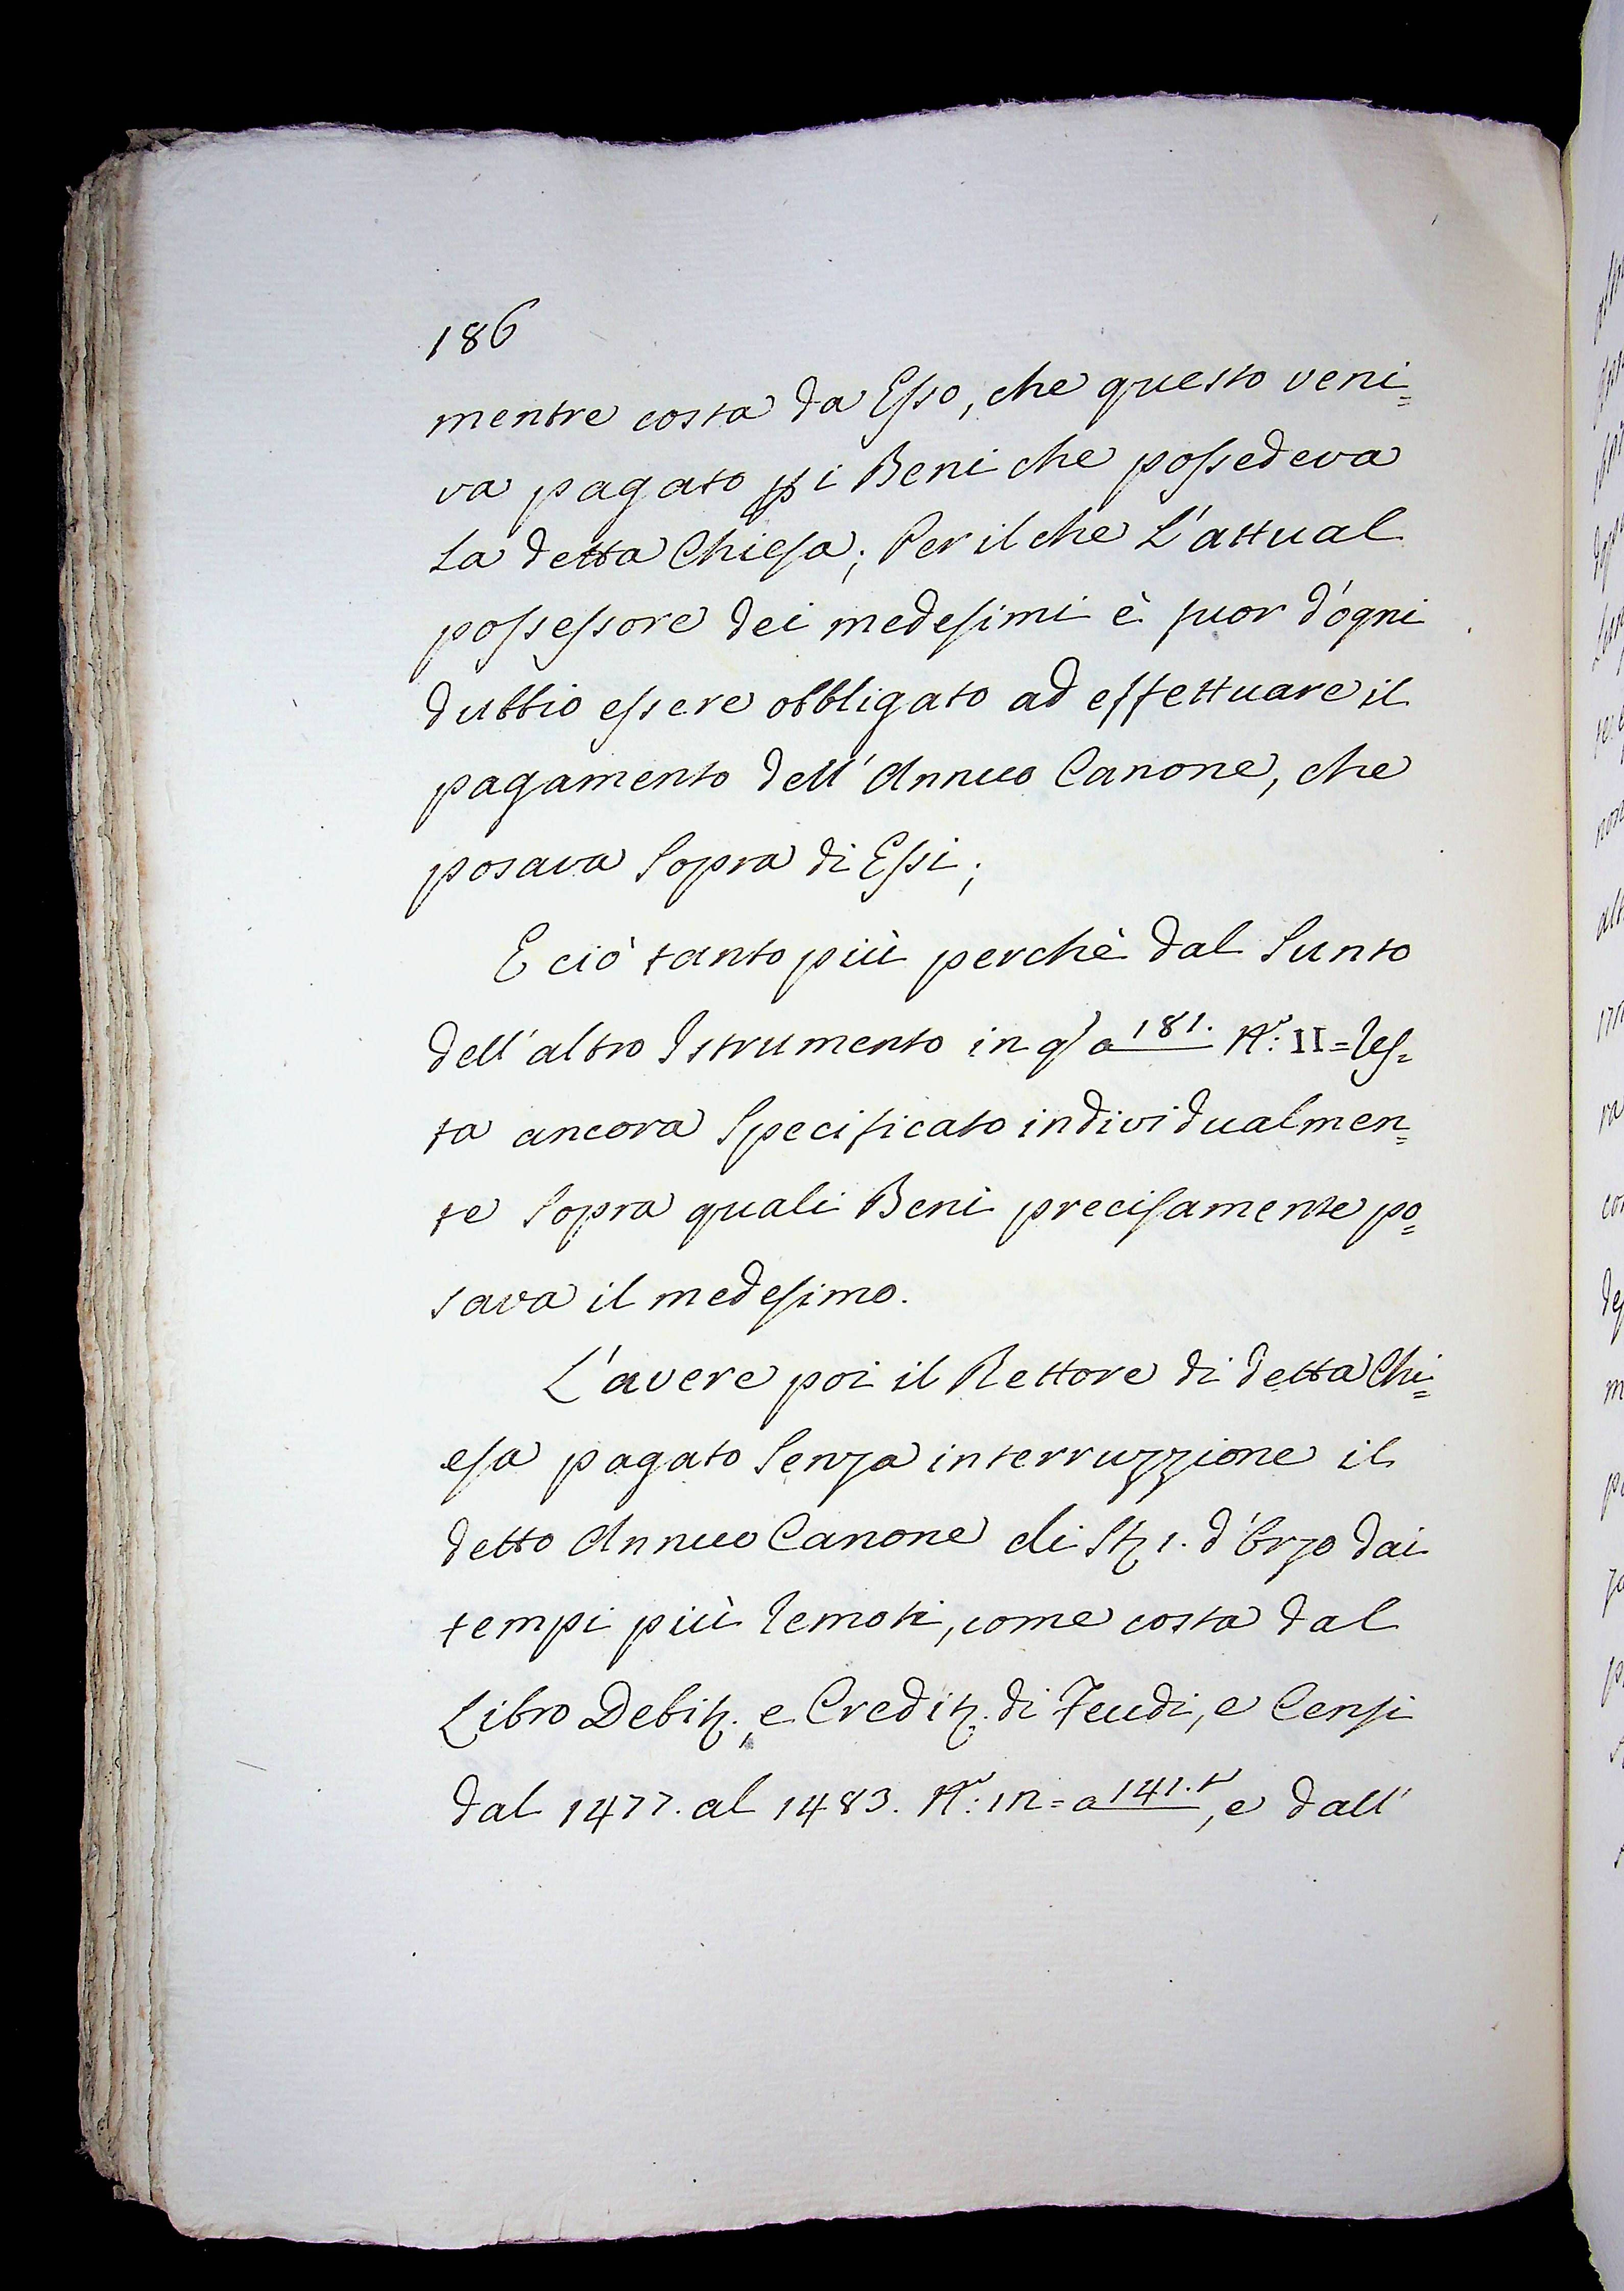 186
mentre costa da Esso, che questo veni=
va pagato p i Beni che possedeva
La detta Chiesa; Per il che L'attual
possessore dei medesimi è fuor d'ogni
dubbio essere obbligato ad effettuare il
pagamento dell'Annuo Canone, che
posava Sopra di Essi;
E ciò tanto più perchè dal Sunto
dell'altro Istrumento in q̃ a 181. N.º: II = res=
ta ancora Specificato individualmen=
te Sopra quali Beni precisamente po=
sava il medesimo.
L'avere poi il Rettore di detta Chi=
esa pagato Senza interruzzione il
detto Annuo Canone di St̃ 1. d'Orzo dai
tempi più remoti, come costa dal
Libro Debit̃. e Credit̃. di Feudi, e Censi
dal 1477. al 1483. N.º: in = a 141. t, e dall'